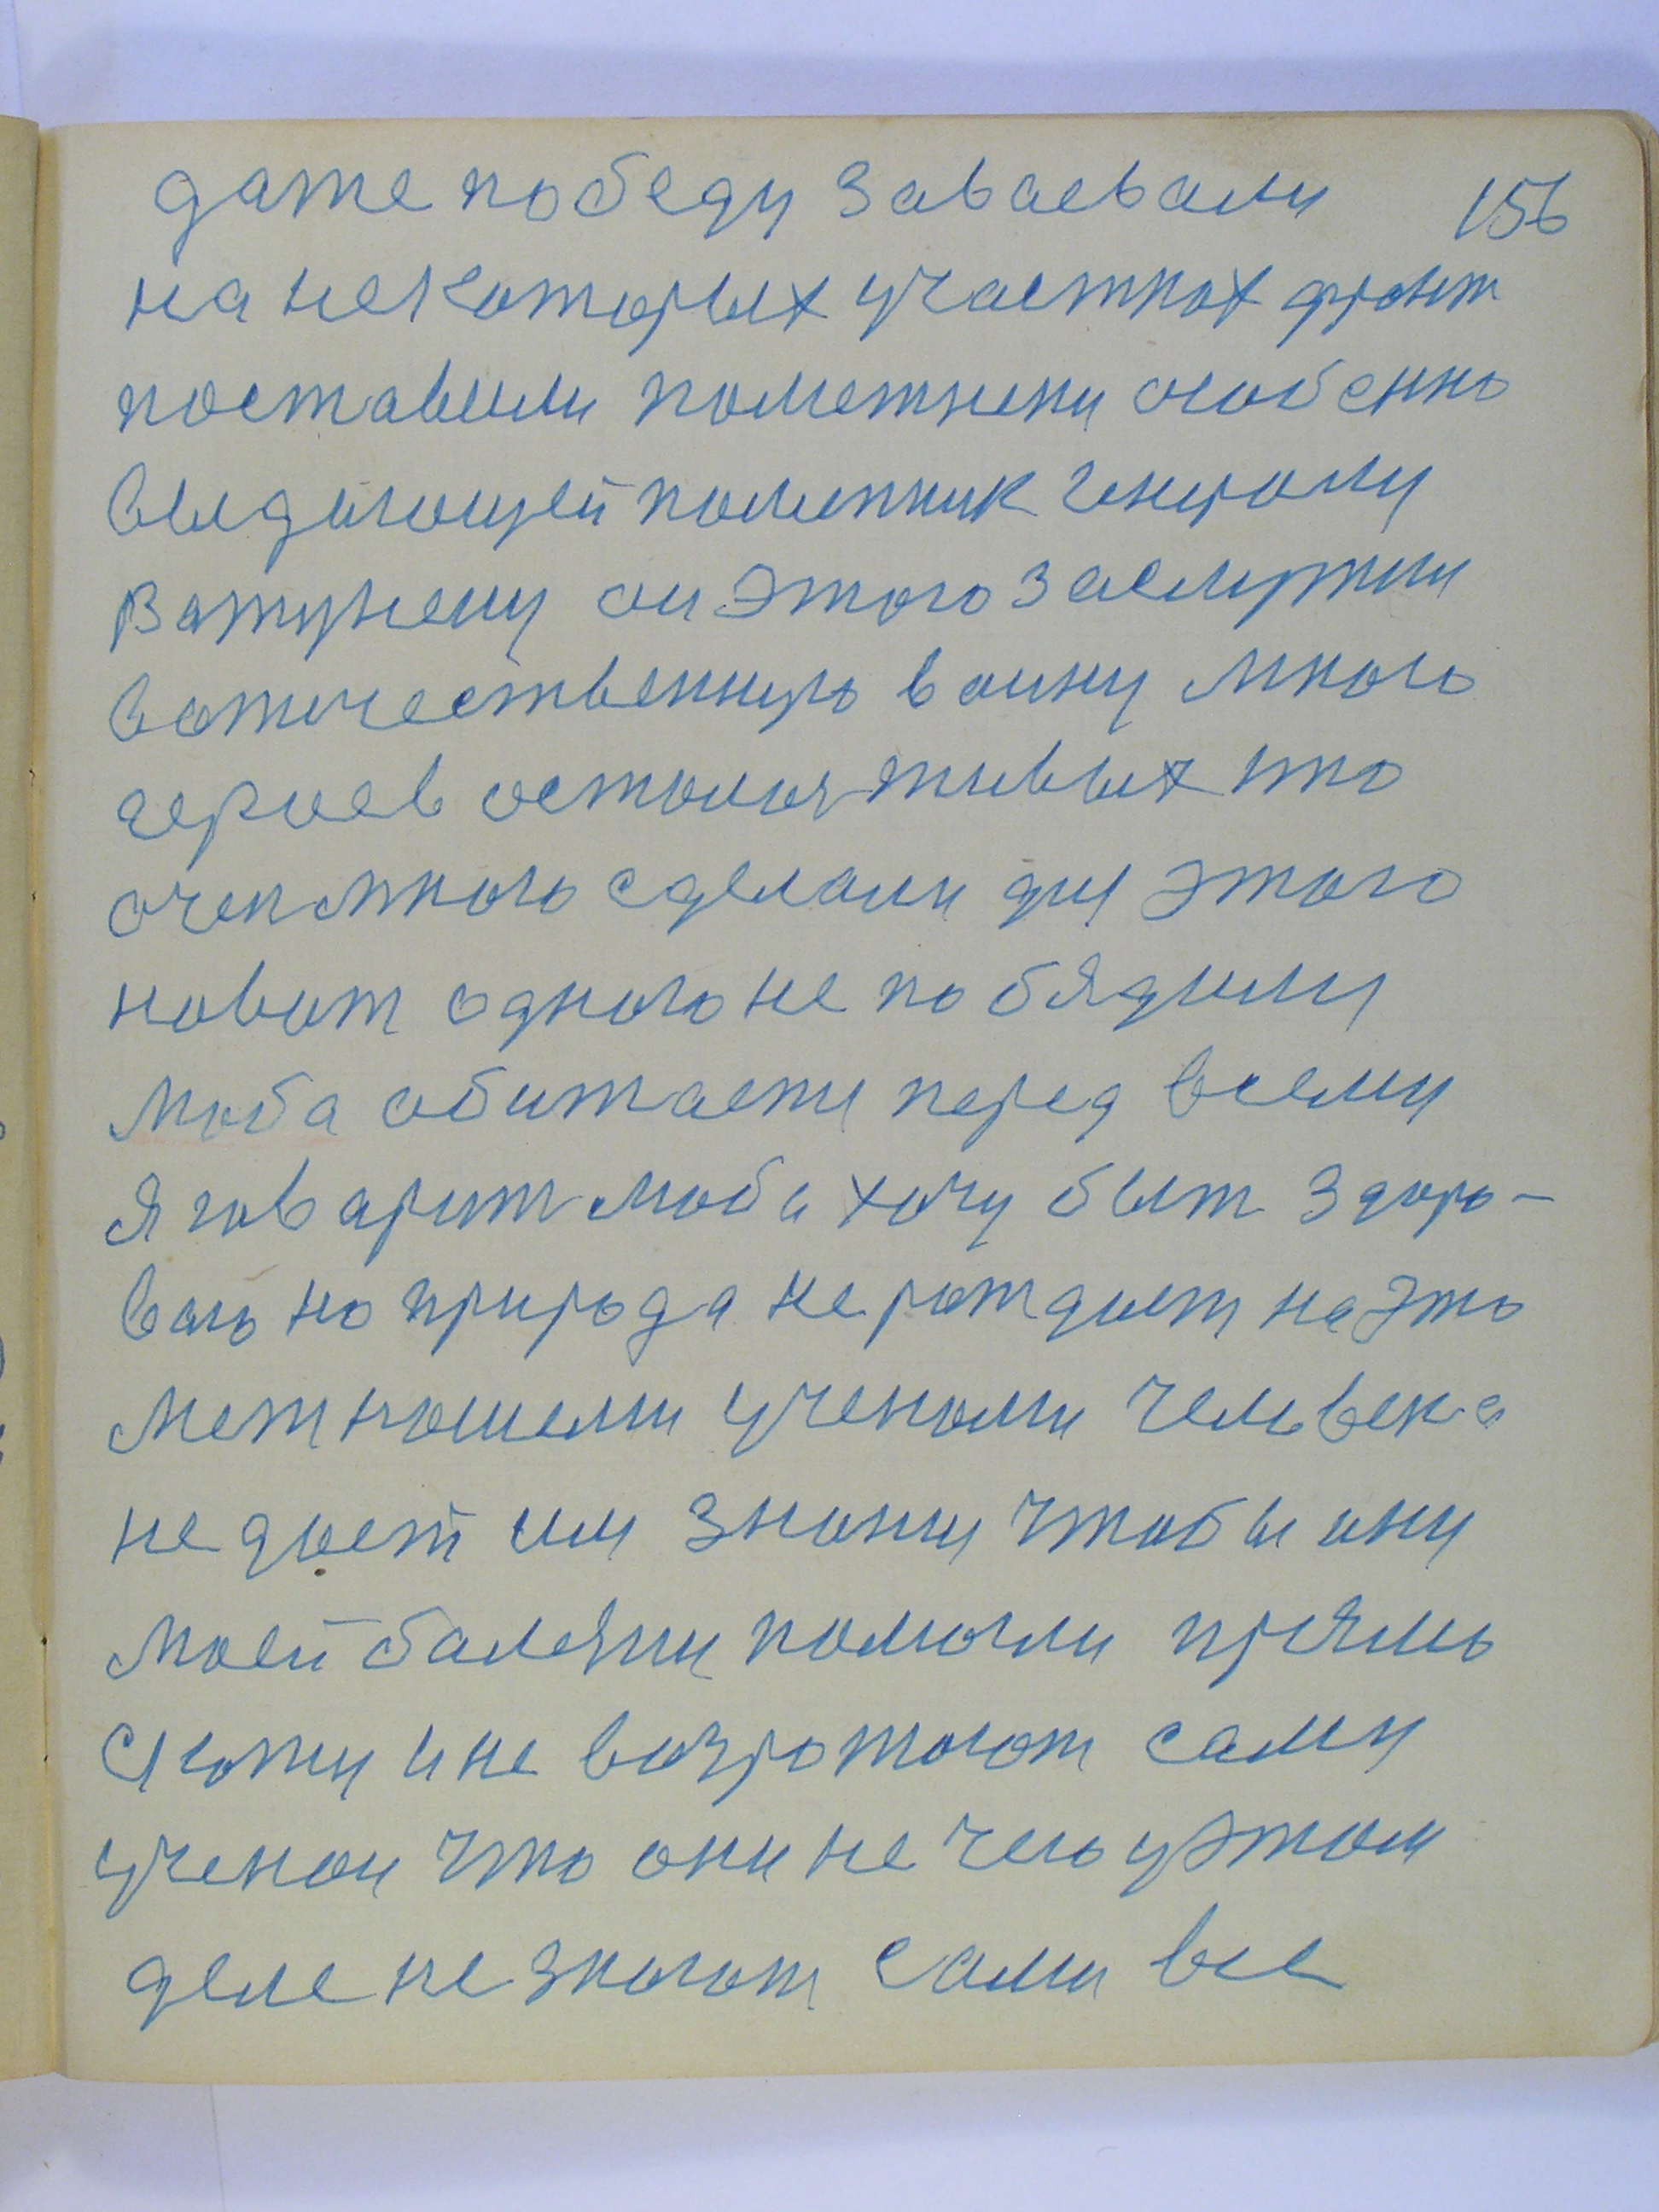 даже победу заваевали 156
на некоторых участках фронт
поставили паметнеки особенно
выдающей паметник генералу
Ватутену он этого заслужил
вотичественную воину много
героев осталось живых што
очен много сделали для этого
новот одного не побядили
Люба обижаетца перед всеми
я говарит люба хочу быт здоро-
вою но природа нерождает на это
меж нашеми учеными человека
недает им знании чтобы они
моей балезни помогли прямо
скажу и не возражают сами
ученои что они не чего уэтом
деле не знают сами все